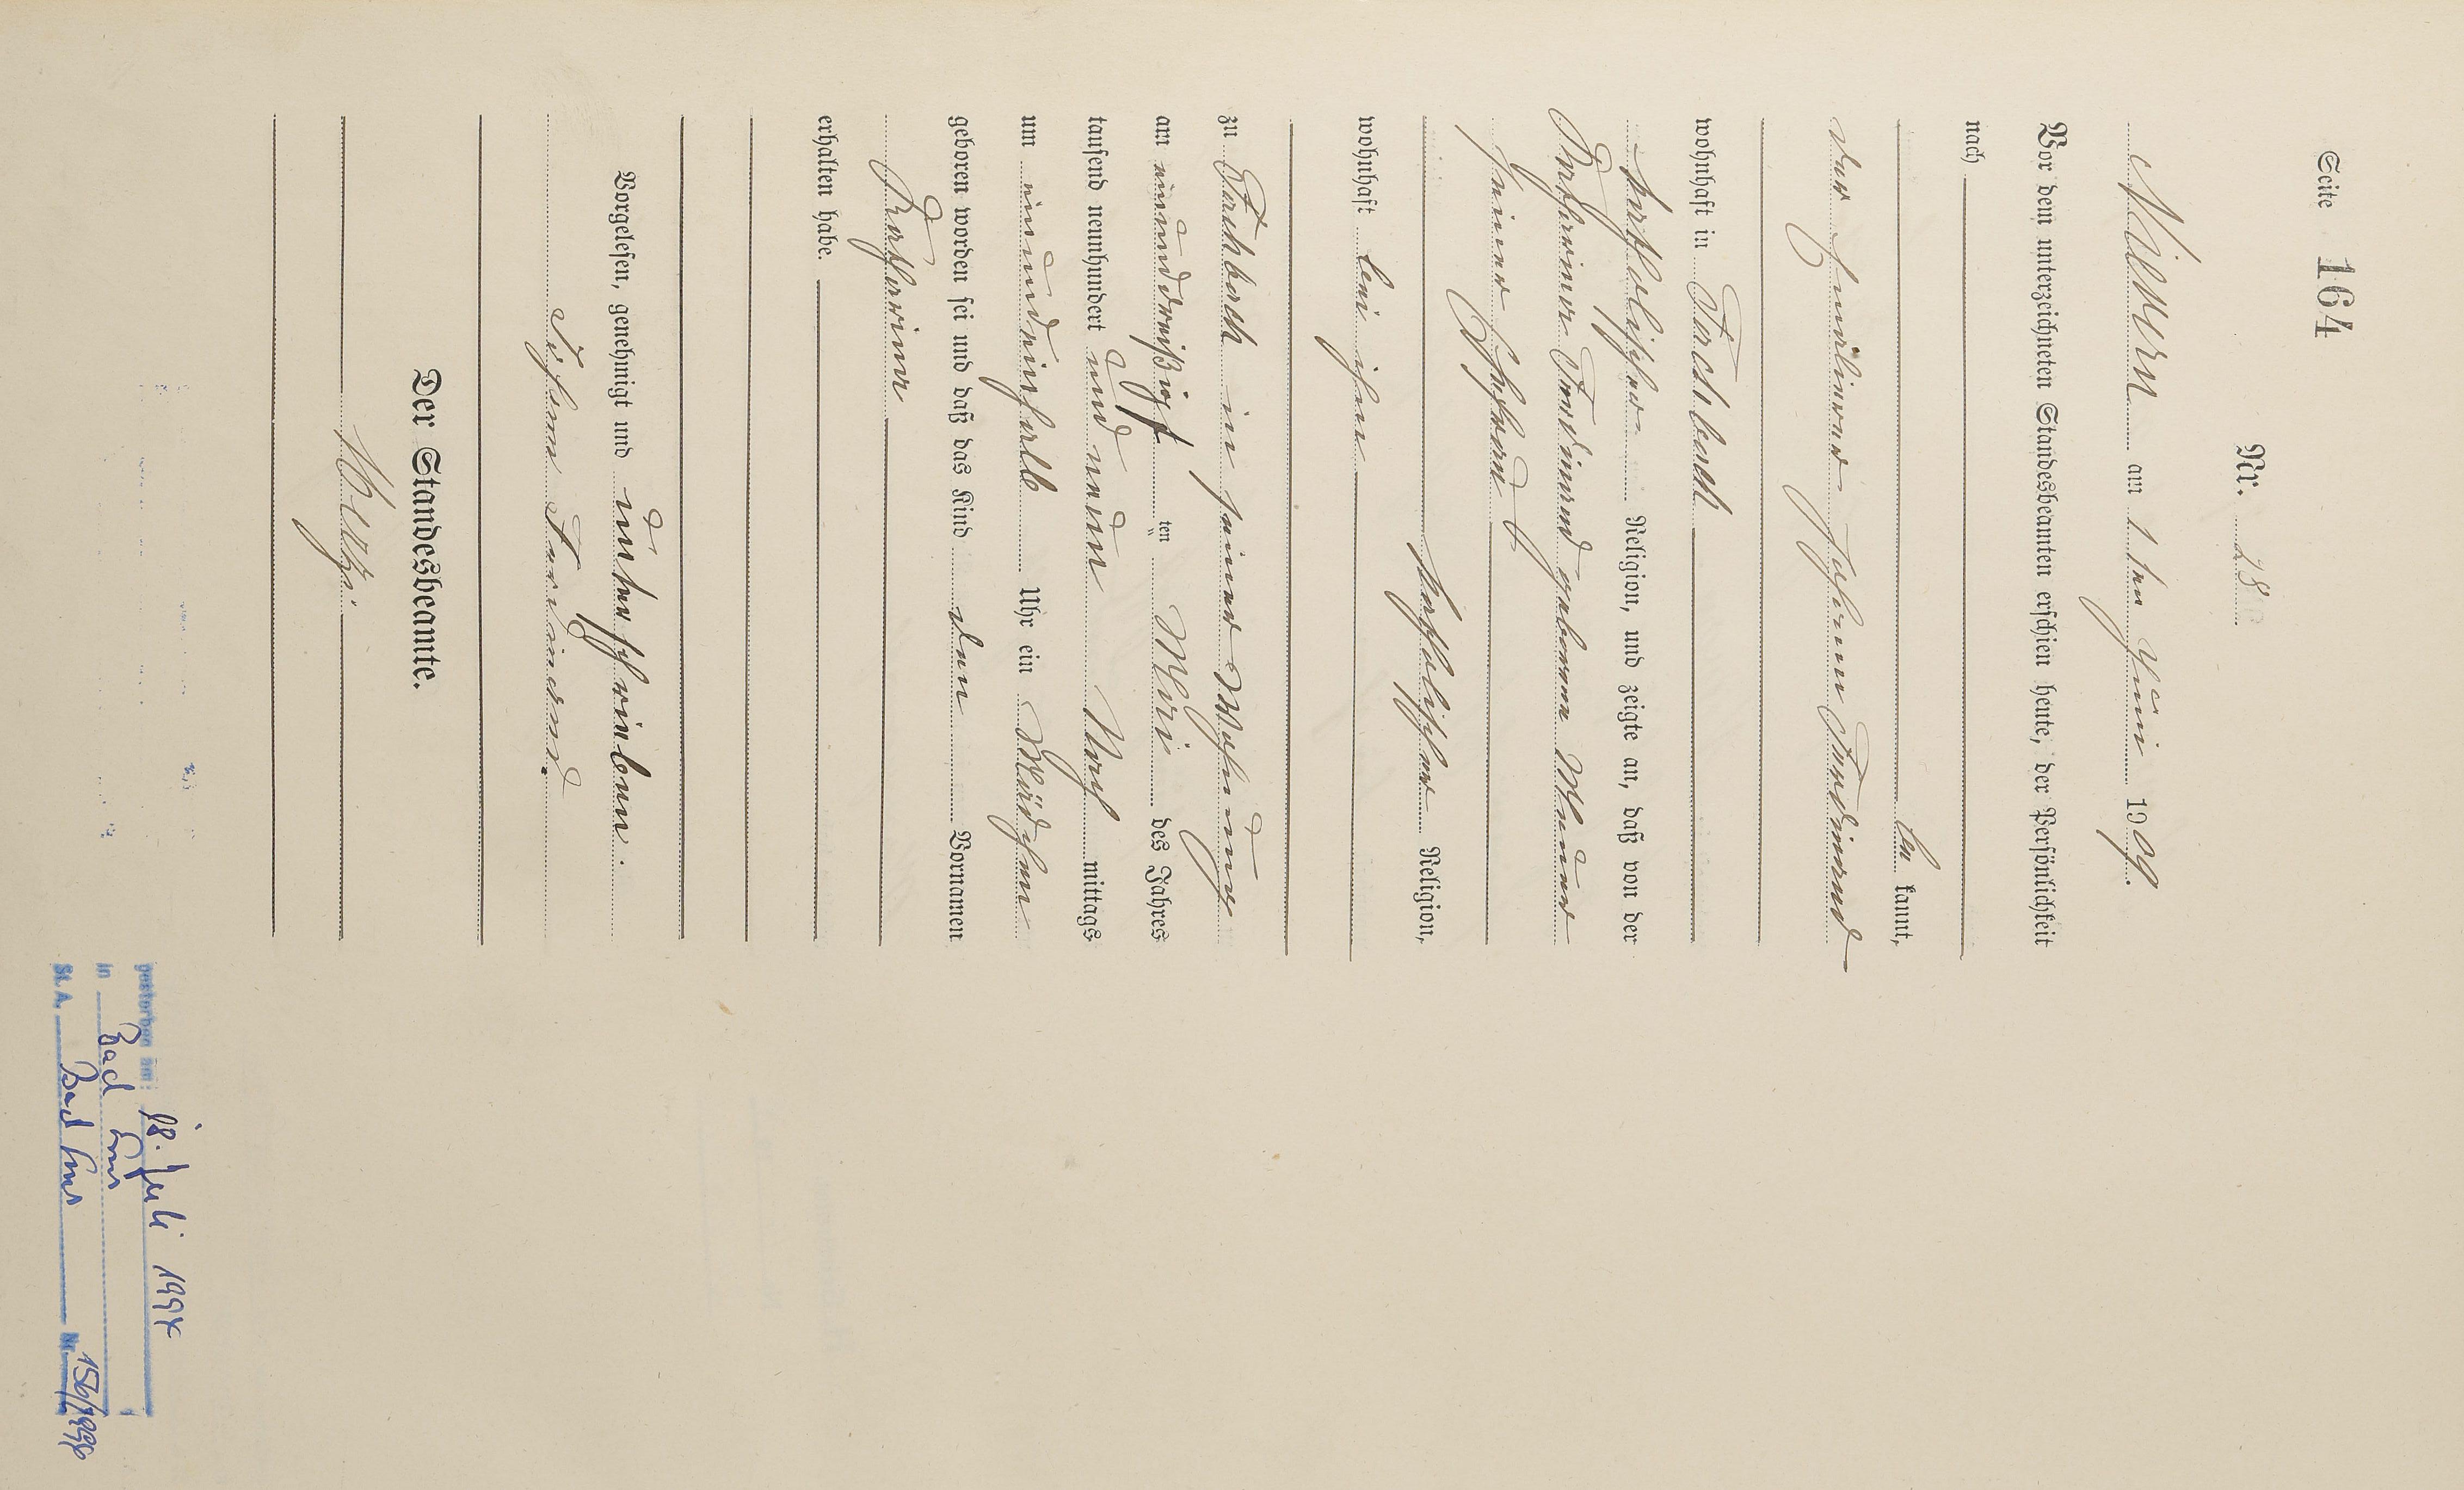 Seite 164
Nr. 28
Nievern am 1ten Juni 1909.
Vor dem unterzeichneten Standesbeamten erschien heute, der Persönlichkeit
nach
be kannt,
der Johann Ferdinand
wohnhaft in Fachbach
katholischer Religion, und zeigte an, daß von der
Katharina Ferdinand geborene
seiner Ehefrau
katholischer Religion,
wohnhaft bei ihm
zu Fachbach in seiner Wohnung
am einunddreißigsten ten Mai des Jahres
tausend neunhundert und neun Nach mittags
um einundeinhalb Uhr ein Mädchen
geboren worden sei und daß das Kind den Vornamen
Katharina
erhalten habe.
Vorgelesen, genehmigt und unterschrieben.
Johann Ferdinand.
Der Standesbeamte.
gestorben am: 18. Juli 1994
in Bad Ems
St. A. Bad Ems Nr. 156/1994